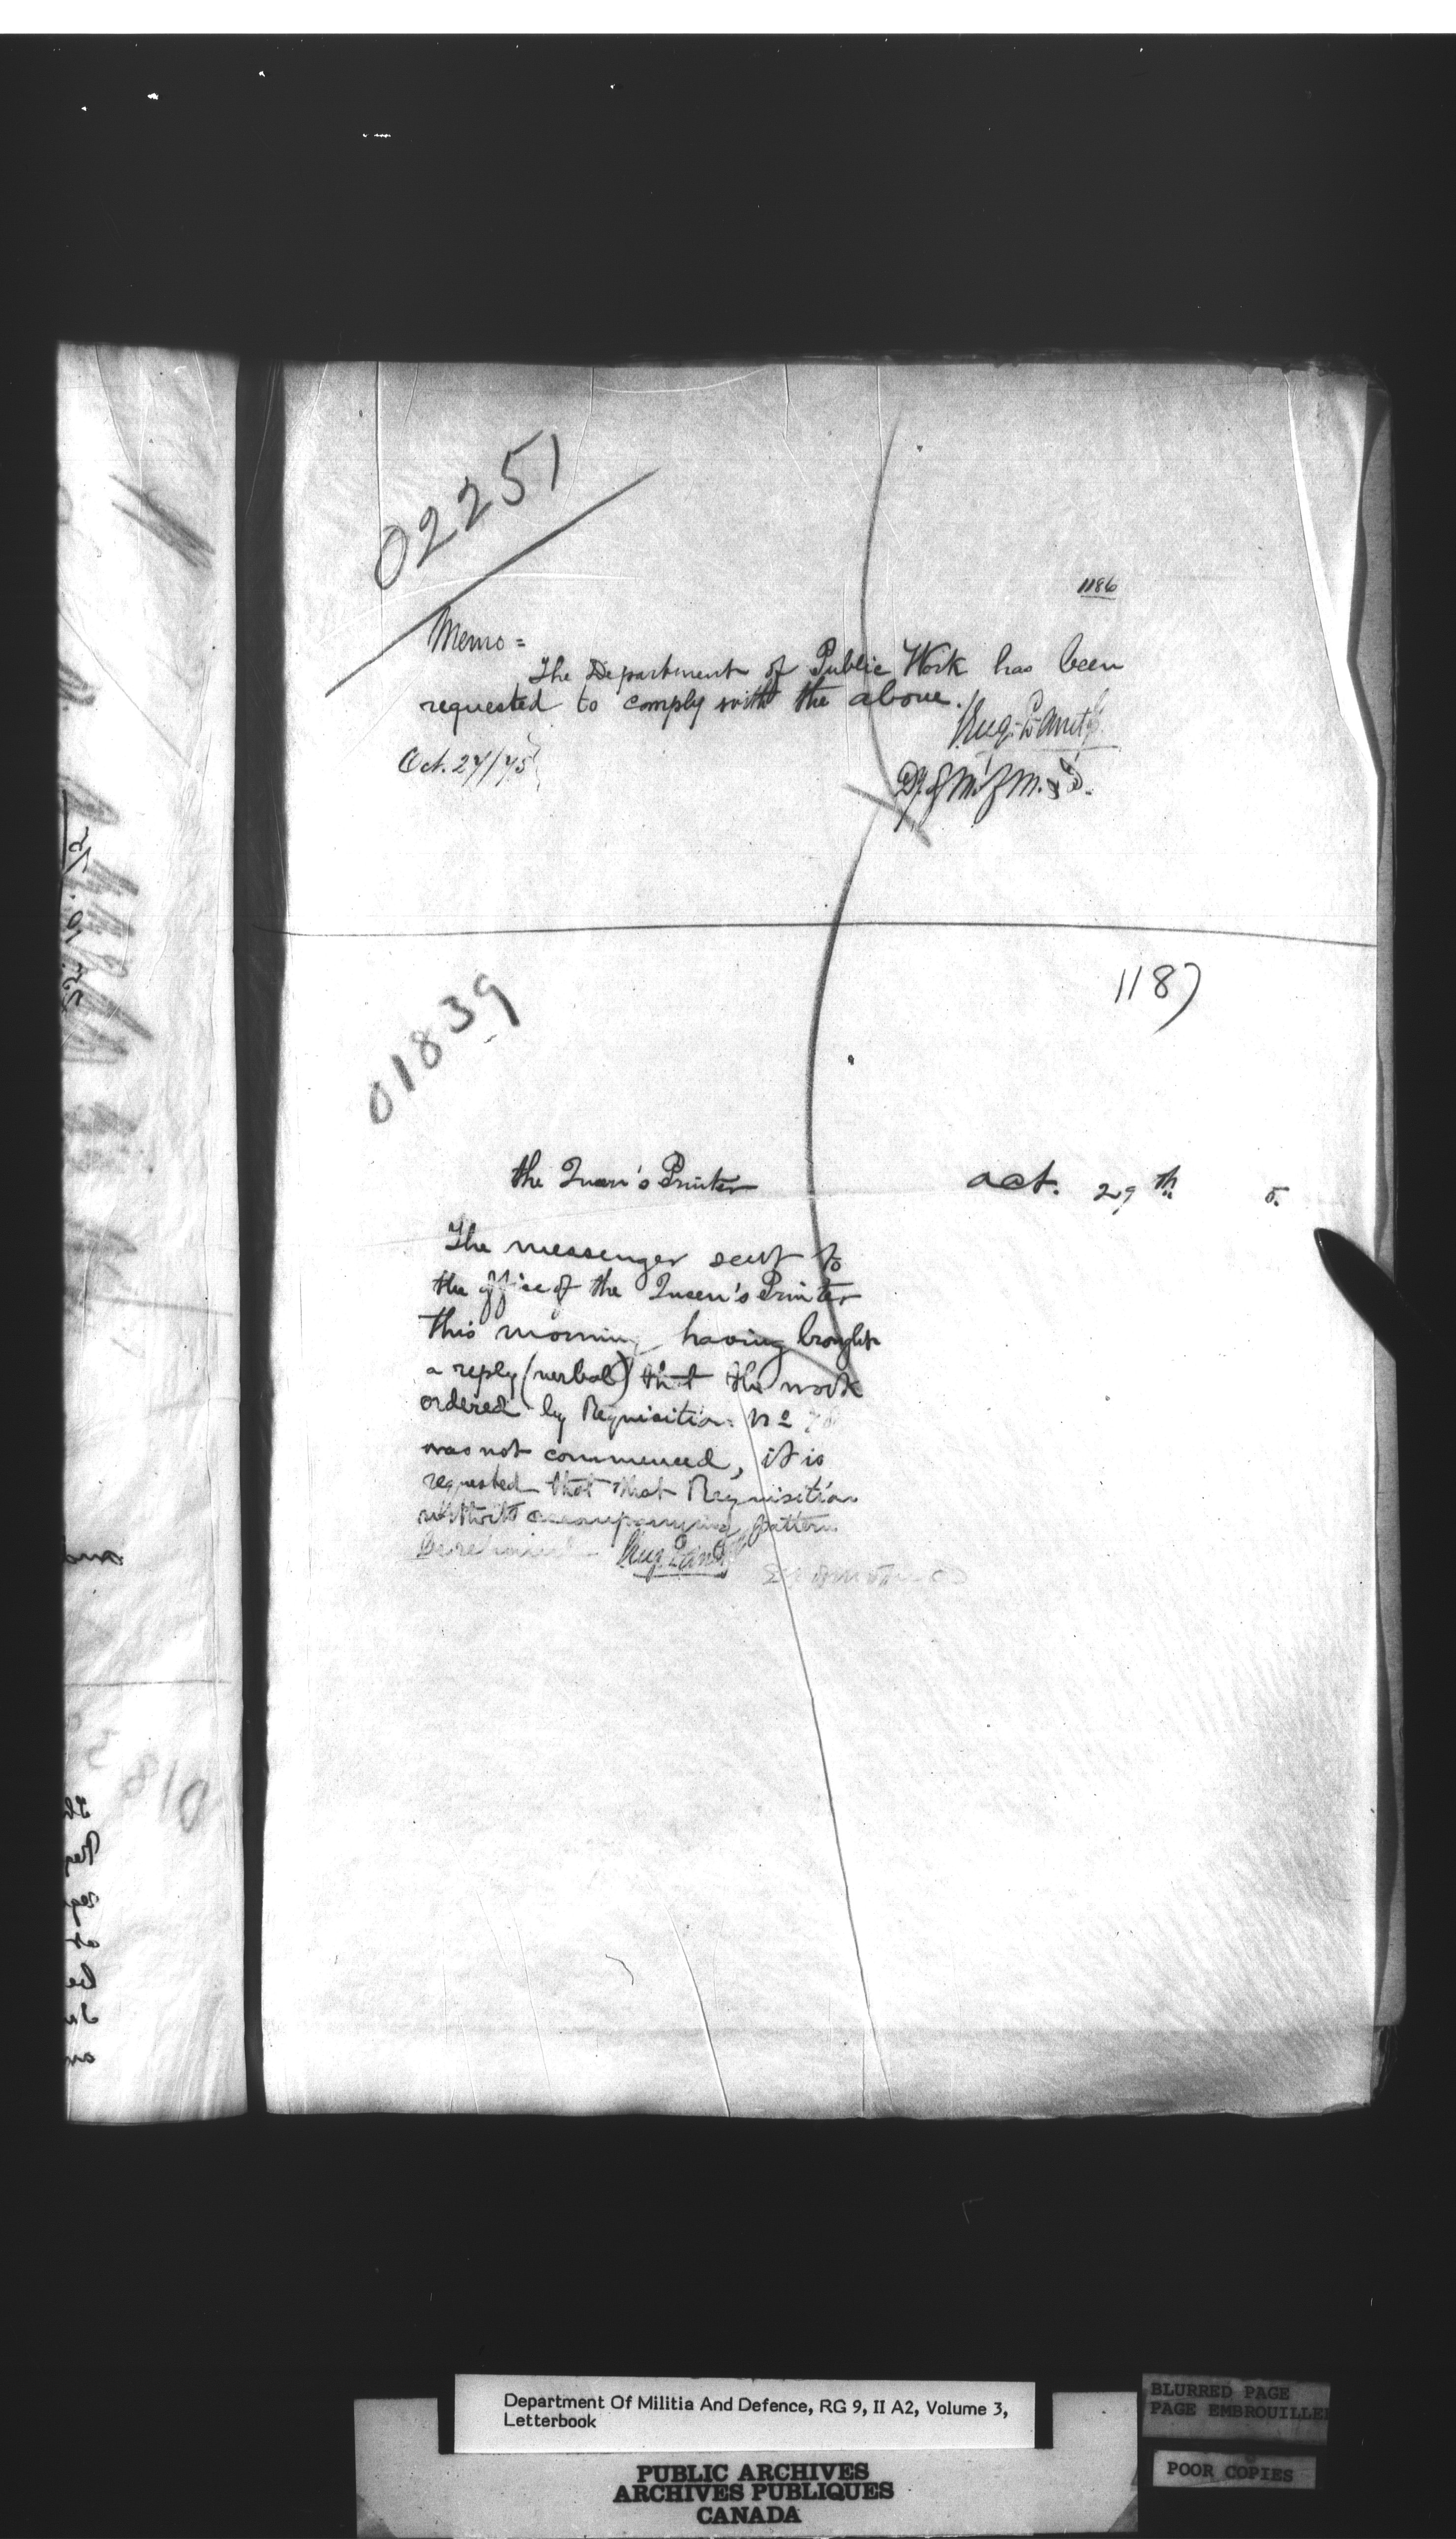 02251
1186
Memo =
The Department of Public Work has been
requested to comply with the above.
Oct. 27/75
1187
01839
the Queen's Printer
Oct. 29th 5.
The messenger sent to
the office of the Queen's Printer
this morning having brought
a reply (verbal) that the work
ordered by Requisition No
was not commenced, it is
requested that that Requisition
with its accompanying pattern
be
Department Of Militia And Defence, RG 9, II A2, Volume 3,
Letterbook
PUBLIC ARCHIVES
ARCHIVES PUBLIQUES
CANADA
BLURRED PAGE
PAGE EMBROUILLE
POOR COPIES